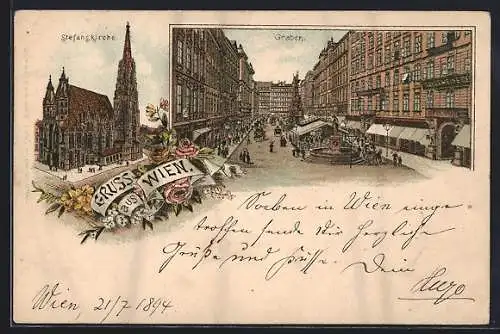 Stefanskirche.
Graben.
GRUSS
AUS
WIEN.
Soeben in Wien einge-
troffen sende Dir herzliche
Grüße und Küsse. Dein
Hugo
Wien, 21/7 1894